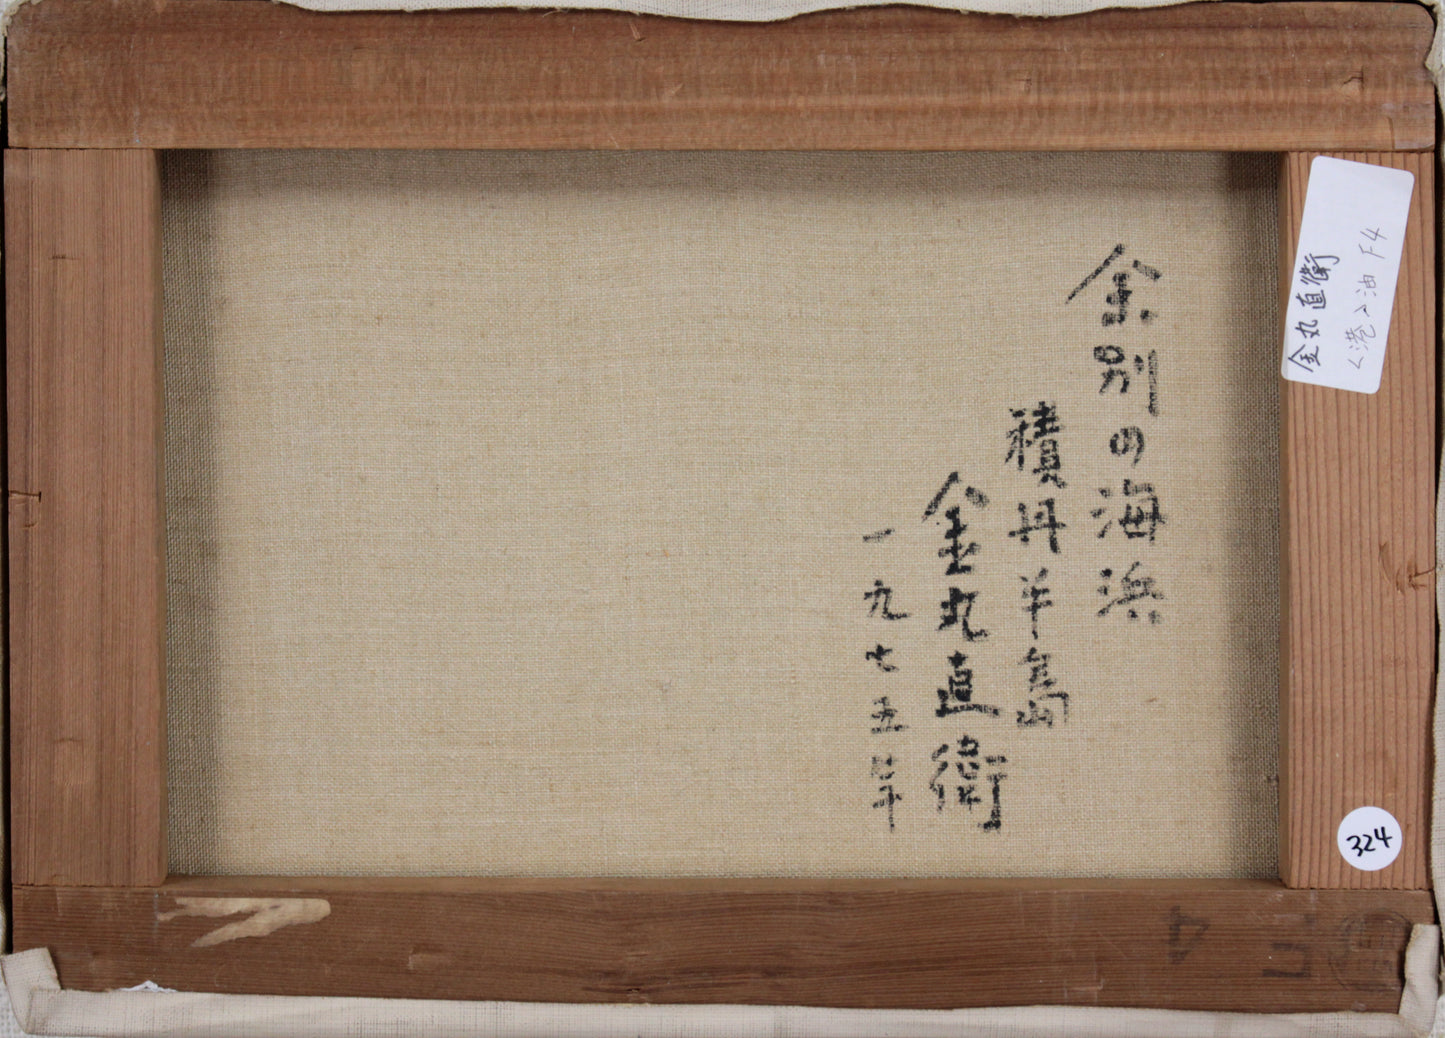 余別の海浜
積丹半島
金丸直衛
一九七五年
金丸直衛
＜港＞油 F4
324